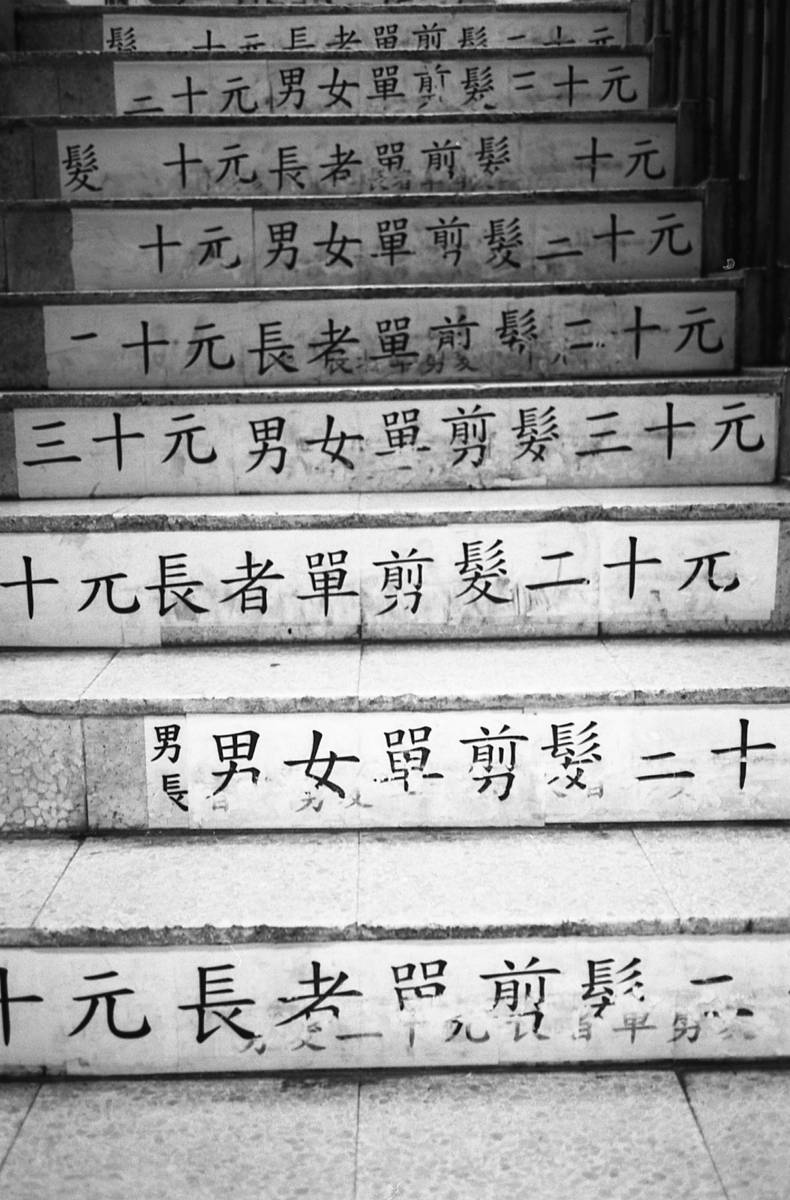 髮 十元長者單剪髮二十元
二十元男女單剪髮三十元
髮 十元長者單剪髮 十元
十元男女單剪髮二十元
十元長者單剪髮二十元
三十元男女單剪髮三十元
十元長者單剪髮二十元
男長 男女單剪髮二十
十元長者單剪髮二
男女二十元長者單男女